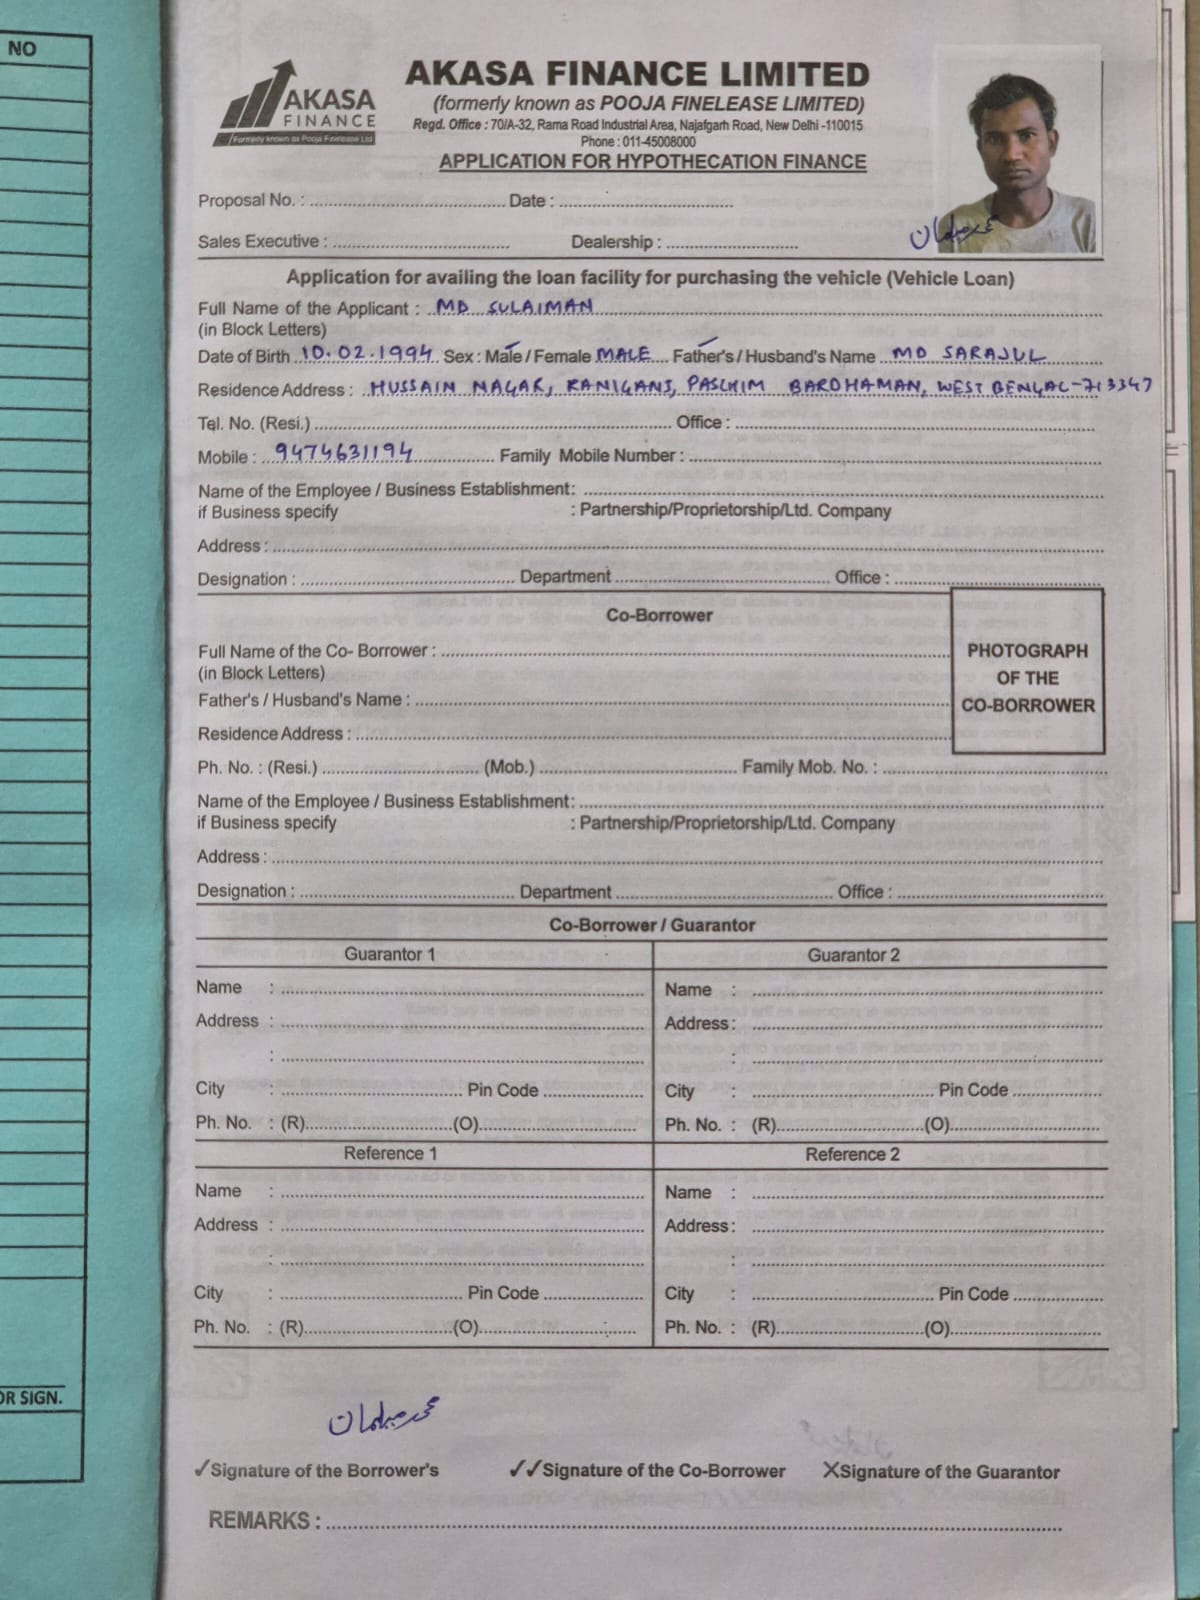 NO
AKASA
FINANCE
Formerly known as Pooja Finelease Ltd.
AKASA FINANCE LIMITED
(formerly known as POOJA FINELEASE LIMITED)
Regd. Office : 70/A-32, Rama Road Industrial Area, Najafgarh Road, New Delhi -110015
Phone : 011-45008000
APPLICATION FOR HYPOTHECATION FINANCE
Proposal No. : Date :
محمد سلیمان
Sales Executive : Dealership :
Application for availing the loan facility for purchasing the vehicle (Vehicle Loan)
Full Name of the Applicant : MD SULAIMAN
(in Block Letters)
Date of Birth 10.02.1994 Sex : Male / Female MALE Father's / Husband's Name MD SARAJUL
Residence Address : HUSSAIN NAGAR, RANIGANJ, PASCHIM BARDHAMAN, WEST BENGAL-713347
Tel. No. (Resi.) Office :
Mobile : 9474631194 Family Mobile Number :
Name of the Employee / Business Establishment:
if Business specify : Partnership/Proprietorship/Ltd. Company
Address :
Designation : Department Office :
Co-Borrower
Full Name of the Co- Borrower :
(in Block Letters)
Father's / Husband's Name :
Residence Address :
PHOTOGRAPH
OF THE
CO-BORROWER
Ph. No. : (Resi.) (Mob.) Family Mob. No. :
Name of the Employee / Business Establishment:
if Business specify : Partnership/Proprietorship/Ltd. Company
Address :
Designation : Department Office :
Co-Borrower / Guarantor
Guarantor 1 Guarantor 2
Name : Name :
Address : Address :
: :
City : Pin Code City : Pin Code
Ph. No. : (R) (O) Ph. No. : (R) (O)
Reference 1 Reference 2
Name : Name :
Address : Address :
: :
City : Pin Code City : Pin Code
Ph. No. : (R) (O) Ph. No. : (R) (O)
OR SIGN.
محمد سلیمان
✓Signature of the Borrower's ✓✓Signature of the Co-Borrower XSignature of the Guarantor
REMARKS :